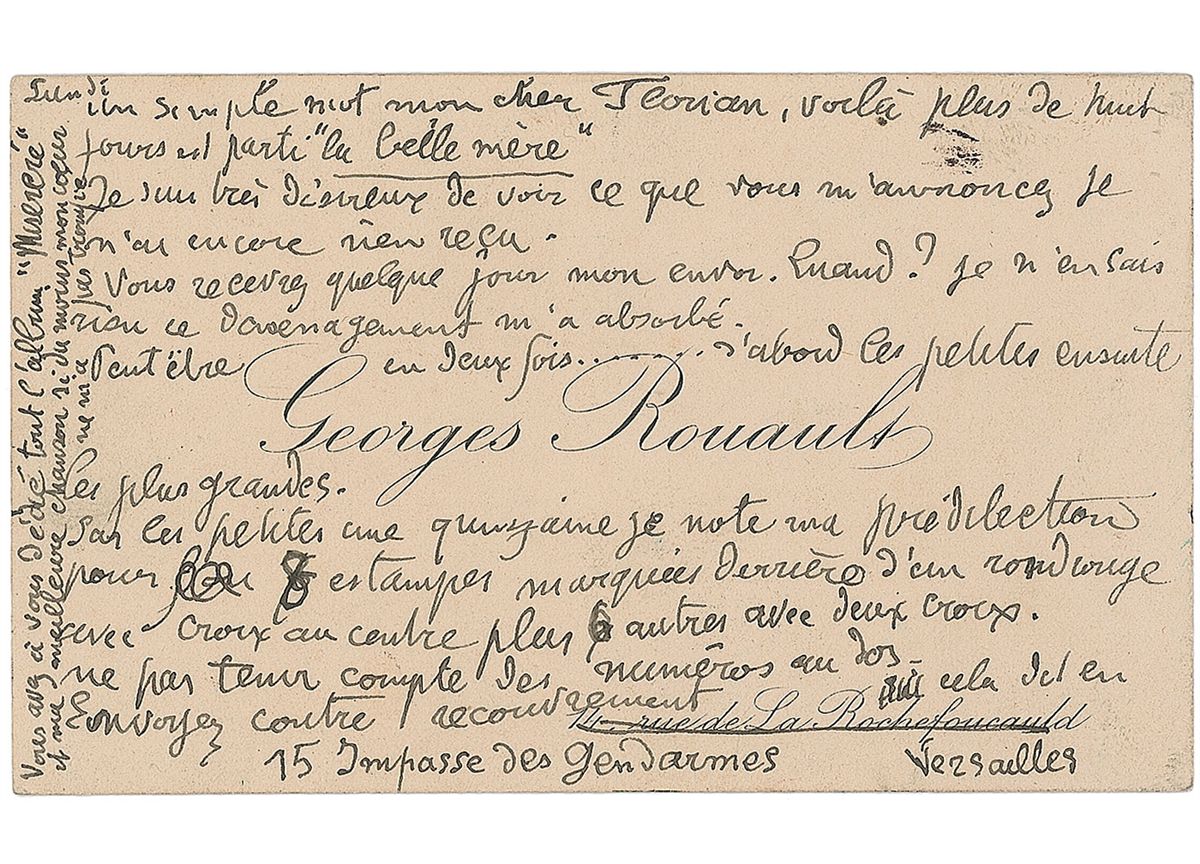 Lundi
Un simple mot mon cher Florian, voilà plus de huit
jours est parti "la belle mère"
Je suis très désireux de voir ce que vous m'annoncez je
n'ai encore rien reçu.
Vous recevrez quelque jour mon envoi. Quand? je n'en sais
rien ce déménagement m'a absorbé.
Peut être en deux fois.......... d'abord les petites ensuite
Georges Rouault
les plus grandes.
Sur les petites une quinzaine je note ma prédilection
pour 8 estampes marquées derrière d'un rond rouge
avec croix au centre plus 6 autres avec deux croix.
ne pas tenir compte des numéros au dos - cela dit en
Envoyez contre recouvrement
14 - rue de La Rochefoucauld
15 Impasse des Gendarmes Versailles
Vous avez à vous dédié tout l'album "Miserere"
et ma meilleure chanson si du moins mon cœur
ne m'a pas